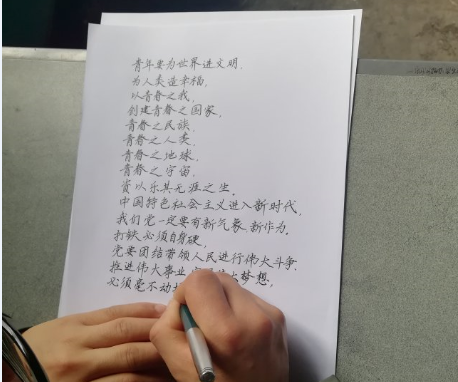 青年要为世界进文明,
为人类造幸福,
以青春之我,
创建青春之国家,
青春之民族,
青春之人类,
青春之地球,
青春之宇宙,
资以乐其无涯之生.
中国特色社会主义进入新时代,
我们党一定要有新气象新作为.
打铁必须自身硬,
党要团结带领人民进行伟大斗争.
推进伟大事业 梦想,
必须毫不动